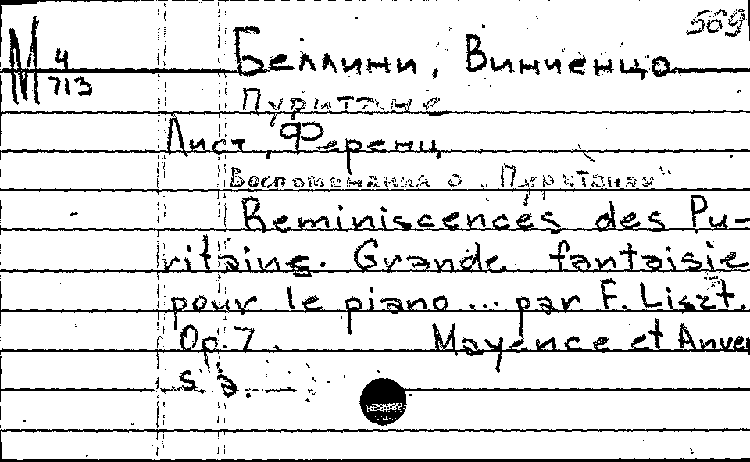 569
М 4
713
Беллини, Винченцо
Пуритане
Лист, Ференц
Воспоминания о "Пуританах"
Reminiscences des Pu-
ritains. Grande fantaisie
pour le piano ... par F. Liszt.
Op. 7. Mayence et Anver
s a.